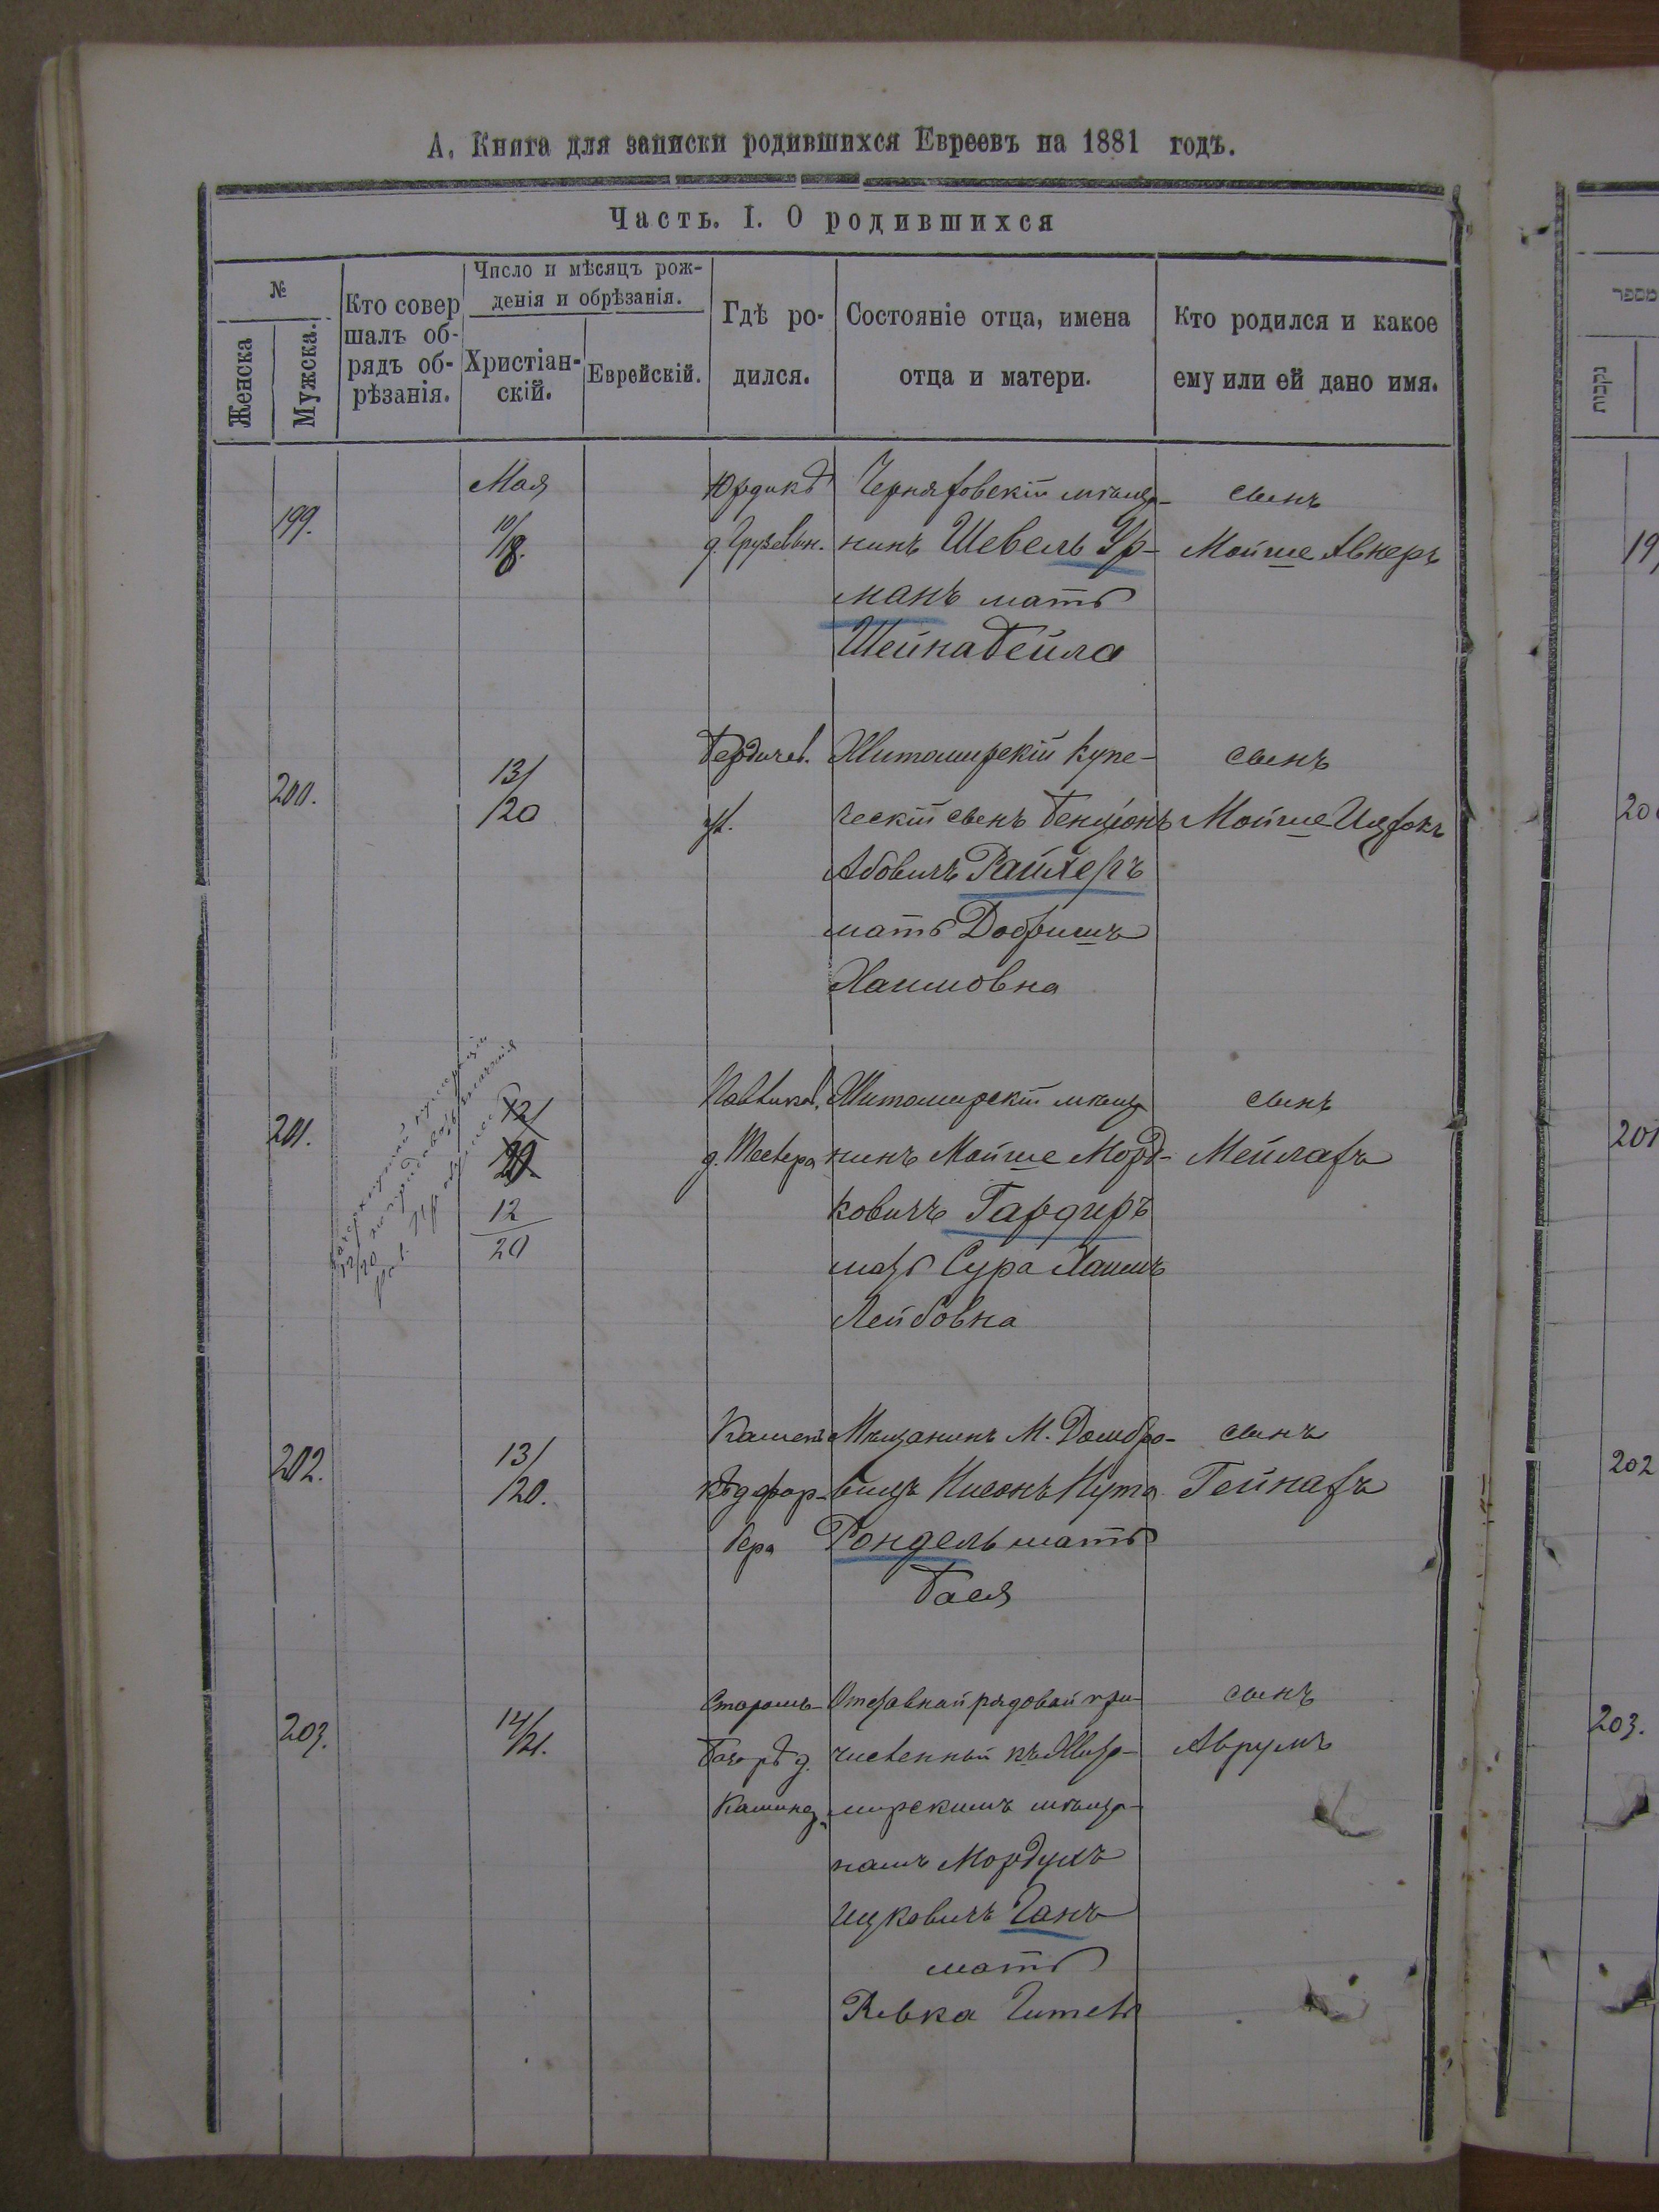 А. Книга для записки родившихся Евреевъ на 1881 годъ.
Часть. I. О родившихся
№
Женска
Мужска.
Кто совер
шалъ об-
рядъ об-
рѣзанія.
Число и мѣсяцъ рож-
денія и обрѣзанія.
Христіан-
скій.
Еврейскій.
Гдѣ ро-
дился.
Состояніе отца, имена
отца и матери.
Кто родился и какое
ему или ей дано имя.
199.
Мая
10/
18.
Черняховскій мѣща-
нинъ Шевель Ур-
манъ мать
Шейна Бейла
сынъ
Мойше Авнеръ
200.
13/
20
Бердичев.
ул.
Житомирскій купе-
ческій сынъ Бенціонъ
Абовичъ Райхеръ
мать Добришъ
Хаимовна
сынъ
Мойше Ицхокъ
201.
12/
20.
12
20
Житомирскій мѣща
нинъ Мойше Морд-
ковичъ Гардиръ
мать Сура
Лейбовна
сынъ
Мейлахъ
202.
13/
20.
Мѣщанинъ М. Домбро-
вицъ Нисонъ Нута
Рондель мать
Бася
сынъ
Гейнахъ
203.
14/
21.
д.
Отставной рядовой при-
численный къ Жито-
мирскимъ мѣща-
намъ Мордухъ
Ицковичъ Ганъ
мать
Ривка
сынъ
Аврумъ
מספר
נקבות
19
20
201
202
203.